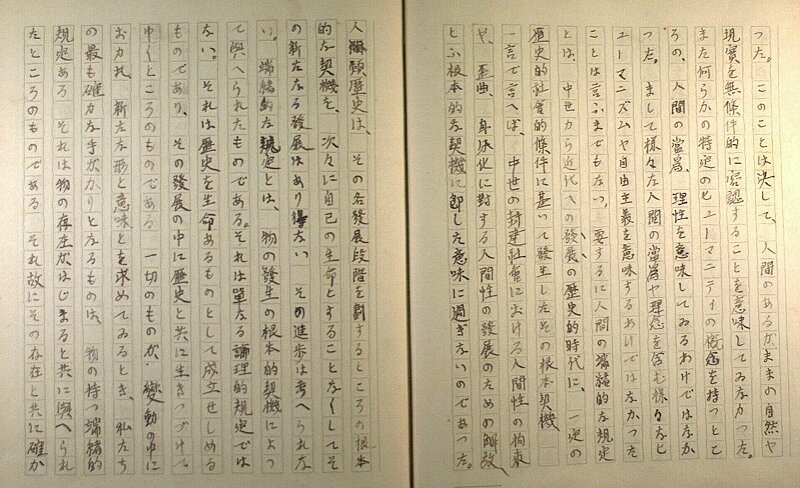 つた。このことは決して、人間のあるがままの自然や
現實を無條件的に容認することを意味してゐなかつた。
また何らかの特定のヒューマニティーの概念を持つとこ
ろの、人間の當爲、理性を意味してゐるわけではなか
つた。まして様々な人間の當爲や理念を含む様々なヒ
ューマニズムや自由主義を意味するわけではなかつた
ことは言ふまでもない。要するに人間の端緒的な規定
とは、中世から近代への發展の歴史的時代に、一定の
歴史的社會的條件に基いて發生したその根本契機
一言で言へば、中世の封建社會における人間性の拘束
や、歪曲、身体化に對する人間性の發展のための解放
とふ根本的な契機に即した意味に過ぎないのであつた。
人類歴史は、その各發展段階を劃するところの根本
的な契機を、次々に自己の生命とすることなくしてそ
の新たなる發展はあり得ない その進歩は考へられな
い。端緒的な規定とは、物の發生の根本的契機によつ
て與へられたものである。それは單なる論理的規定では
ない。それは歴史を生命あるものとして成立せしめる
ものであり、その發展の中に歴史と共に生きつづけて
ゆくところのものである 一切のものが、變動の中に
おかれ、新たな形と意味とを求めてゐるとき、私たち
の最も確かな手がかりとなるものは、物の持つ端緒的
規定である それは物の存在がはじまると共に與へられ
たところのものである それ故にその存在と共に確か